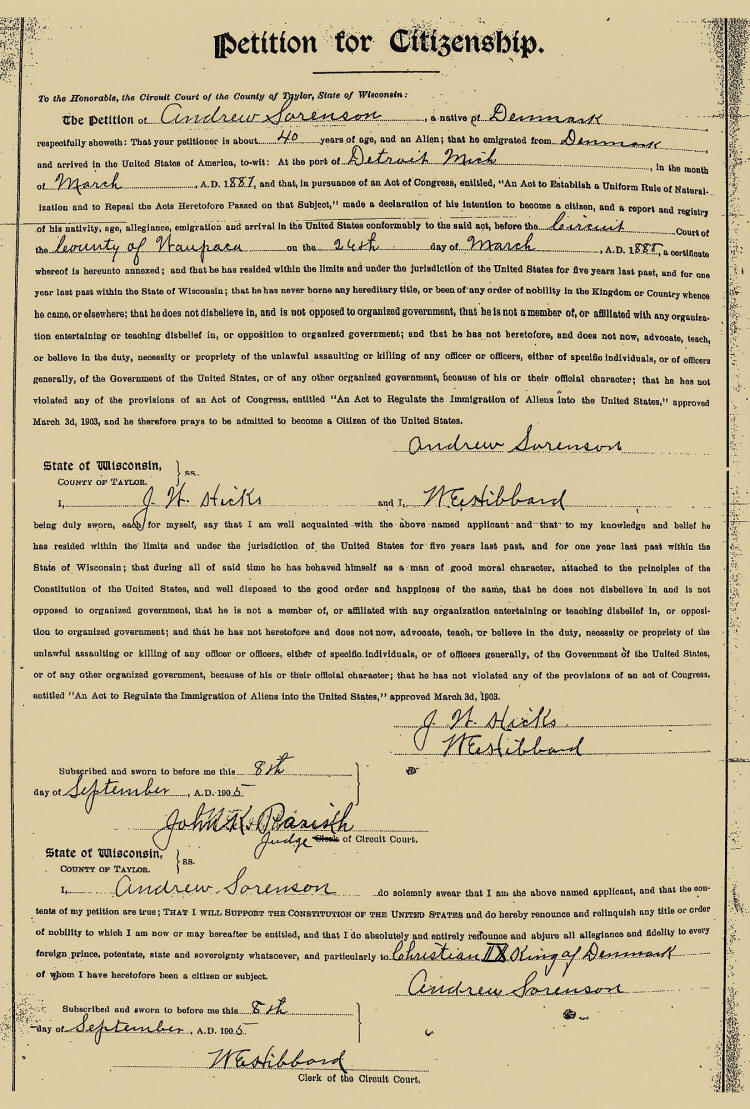 Petition for Citizenship.
To the Honorable, the Circuit Court of the County of Taylor, State of Wisconsin:
The Petition of Andrew Sorenson, a native of Denmark,
respectfully showeth: That your petitioner is about 40 years of age, and an Alien; that he emigrated from Denmark,
and arrived in the United States of America, to-wit: At the port of Detroit Mich, in the month
of March, A.D. 1887, and that, in pursuance of an Act of Congress, entitled, "An Act to Establish a Uniform Rule of Natural-
ization and to Repeal the Acts Heretofore Passed on that Subject," made a declaration of his intention to become a citizen, and a report and registry
of his nativity, age, allegiance, emigration and arrival in the United States conformably to the said act, before the Circuit Court of
the County of Waupaca on the 26th day of March, A.D. 1888, a certificate
whereof is hereunto annexed; and that he has resided within the limits and under the jurisdiction of the United States for five years last past, and for one
year last past within the State of Wisconsin; that he has never borne any hereditary title, or been of any order of nobility in the Kingdom or Country whence
he came, or elsewhere; that he does not disbelieve in, and is not opposed to organized government, that he is not a member of, or affiliated with any organiza-
tion entertaining or teaching disbelief in, or opposition to organized government; and that he has not heretofore, and does not now, advocate, teach,
or believe in the duty, necessity or propriety of the unlawful assaulting or killing of any officer or officers, either of specific individuals, or of officers
generally, of the Government of the United States, or of any other organized government, because of his or their official character; that he has not
violated any of the provisions of an Act of Congress, entitled "An Act to Regulate the Immigration of Aliens into the United States," approved
March 3d, 1903, and he therefore prays to be admitted to become a Citizen of the United States.
Andrew Sorenson
State of Wisconsin,
COUNTY OF TAYLOR. } ss.
I, J. W. Hicks and I, W E Hibbard
being duly sworn, each for myself, say that I am well acquainted with the above named applicant and that to my knowledge and belief he
has resided within the limits and under the jurisdiction of the United States for five years last past, and for one year last past within the
State of Wisconsin; that during all of said time he has behaved himself as a man of good moral character, attached to the principles of the
Constitution of the United States, and well disposed to the good order and happiness of the same, that he does not disbelieve in and is not
opposed to organized government, that he is not a member of, or affiliated with any organization entertaining or teaching disbelief in, or opposi-
tion to organized government; and that he has not heretofore and does not now, advocate, teach, or believe in the duty, necessity or propriety of the
unlawful assaulting or killing of any officer or officers, either of specific individuals, or of officers generally, of the Government of the United States,
or of any other organized government, because of his or their official character; that he has not violated any of the provisions of an act of Congress,
entitled "An Act to Regulate the Immigration of Aliens into the United States," approved March 3d, 1903.
J. W. Hicks
W E Hibbard
Subscribed and sworn to before me this 8th
day of September, A.D. 1905
John K. Parish
Judge Clerk of Circuit Court.
State of Wisconsin,
COUNTY OF TAYLOR. } ss.
I, Andrew Sorenson do solemnly swear that I am the above named applicant, and that the con-
tents of my petition are true; THAT I WILL SUPPORT THE CONSTITUTION OF THE UNITED STATES and do hereby renounce and relinquish any title or order
of nobility to which I am now or may hereafter be entitled, and that I do absolutely and entirely renounce and abjure all allegiance and fidelity to every
foreign prince, potentate, state and sovereignty whatsoever, and particularly to Christian IX King of Denmark
of whom I have heretofore been a citizen or subject.
Andrew Sorenson
Subscribed and sworn to before me this 8th
day of September, A.D. 1905
W E Hibbard
Clerk of the Circuit Court.